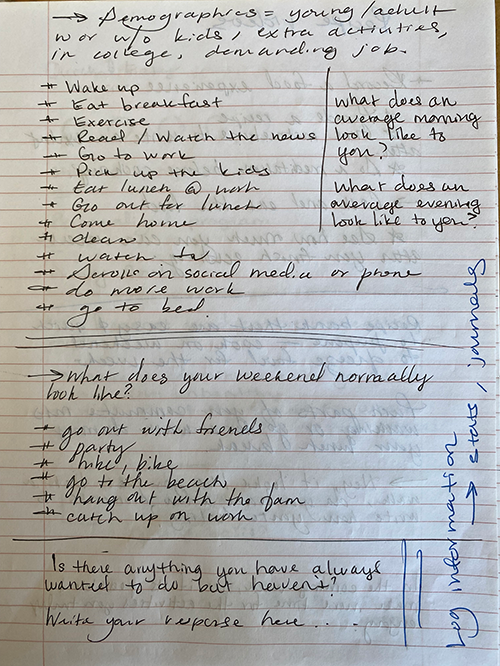 → Demographics = young/adult
w or w/o kids, extra activities,
in college, demanding job.
# Wake up
# Eat breakfast
# Exercise
# Read / Watch the news
# Go to work
# Pick up the kids
# Eat lunch @ work
# Go out for lunch
# Come home
# clean
# watch tv
# Scroll on social media or phone
# do more work
# go to bed.
What does an
average morning
look like to
you?
What does an
average evening
look like to you?
→ What does your weekend normally
look like?
# go out with friends
# party
# hike, bike
# go to the beach
# hang out with the fam
# catch up on work
Is there anything you have always
wanted to do but haven't?
Write your response here . . .
Log information
→ stats, journals